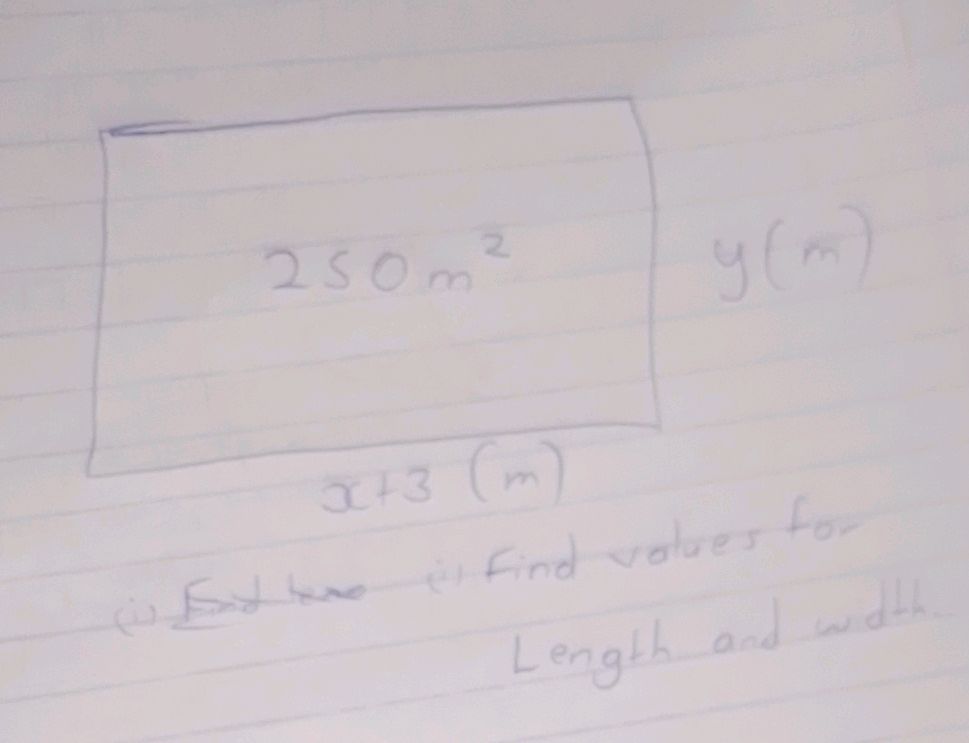 250m²
y(m)
x+3 (m)
(i) Find (i) Find values for
Length and width.